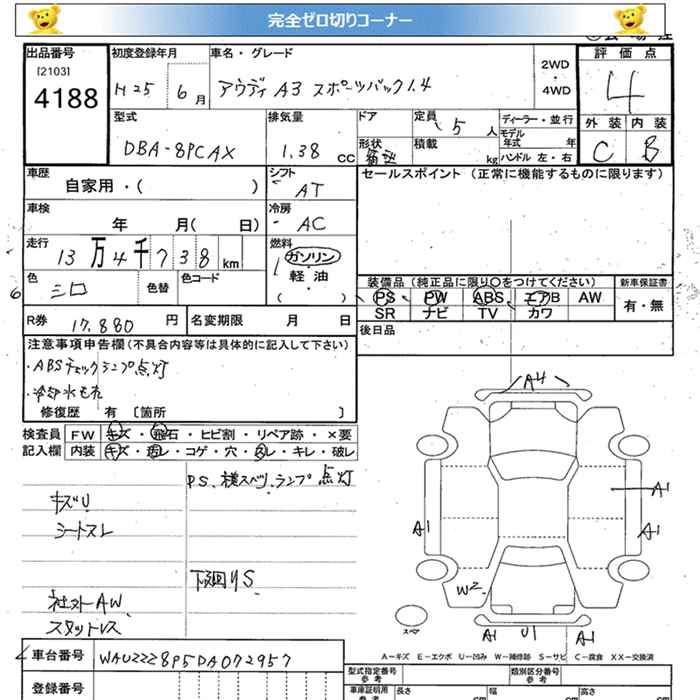 完全ゼロ切りコーナー
出品番号 初度登録年月 車名・グレード 評価点
[2103]
4188
H25 6月 アウディ A3 スポーツバック1.4
2WD
・
4WD
4
型式 排気量 ドア 定員 5人 ディーラー・並行
モデル年式 年
外装 内装
DBA-8PCAX 1.38 CC 形状 積載 kg ハンドル 左・右 C B
車歴 シフト セールスポイント (正常に機能するものに限ります)
自家用・( ) AT
車検 冷房
年 月( 日) AC
走行 燃料
13万4千738km ガソリン
軽・油
( )
色 色替 色コード
装備品 (純正品に限り〇をつけてください) 新車保証書
6 シロ PS PW ABS エアB AW 有・無
SR ナビ TV カワ
R券 17.880円 名変期限 月 日 後日品
注意事項申告欄 (不具合内容等は具体的に記入して下さい)
・ABSチェックランプ点灯
・冷却水モレ
修復歴 有 [箇所 ]
検査員 FW キズ・飛石・ヒビ割・リペア跡・×要
記入欄 内装 キズ・汚レ・コゲ・穴・スレ・キレ・破レ
P.S、横スベリ、ランプ点灯
キズU
シートスレ
下廻りS
社外AW
スタットレス
A4
A1
A1
A1
W2
スペア
A1 U1 A1
A-キズ E-エクボ U-凹み W-補修跡 S-サビ C-腐食 XX-交換済
車台番号 WAUZZZ8P5DA072957
型式指定番号
参考
類別区分番号
参考
登録番号 車庫証明用
参考
長さ cm 幅 cm 高さ cm